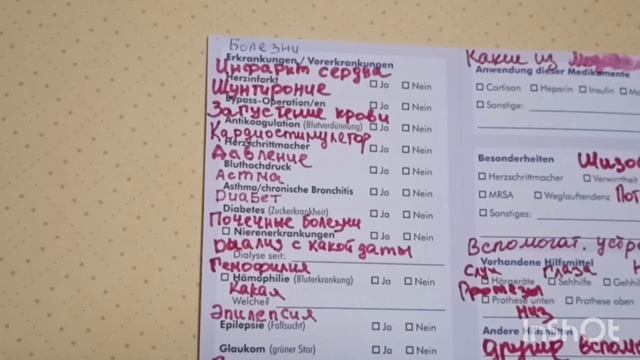 Болезни
Erkrankungen / Vorerkrankungen
Инфаркт сердца
Herzinfarkt ☐ Ja ☐ Nein
Шунтироние
Bypass-Operation/en ☐ Ja ☐ Nein
Запустение крови
Antikoagulation (Blutverdünnung) ☐ Ja ☐ Nein
Кардиостимулегор
Herzschrittmacher ☐ Ja ☐ Nein
Давление
Bluthochdruck ☐ Ja ☐ Nein
Астма
Asthma/chronische Bronchitis ☐ Ja ☐ Nein
Диабет
Diabetes (Zuckerkrankheit) ☐ Ja ☐ Nein
Почечные болезни
☐ Nierenerkrankungen ☐ Ja ☐ Nein
Диализ с какой даты
Dialyse seit:
Генофилия
☐ Hämophilie (Bluterkrankung) ☐ Ja ☐ Nein
Какая
Welche?
Эпилепсия
Epilepsie (Fallsucht) ☐ Ja ☐ Nein
Glaukom (grüner Star) ☐ Ja ☐ Nein
Какие из
Anwendung dieser Medikamente
☐ Cortison ☐ Heparin ☐ Insulin ☐
☐ Sonstige:
Besonderheiten
☐ Herzschrittmacher ☐ Verwirrtheit
☐ MRSA ☐ Weglauftendenz
☐ Sonstiges:
Вспомогат.
Vorhandene Hilfsmittel
слух глаза
☐ Hörgeräte ☐ Sehhilfe ☐
Протезы
☐ Prothese unten ☐ Prothese oben
низ
Andere Hilfsmittel
InShot